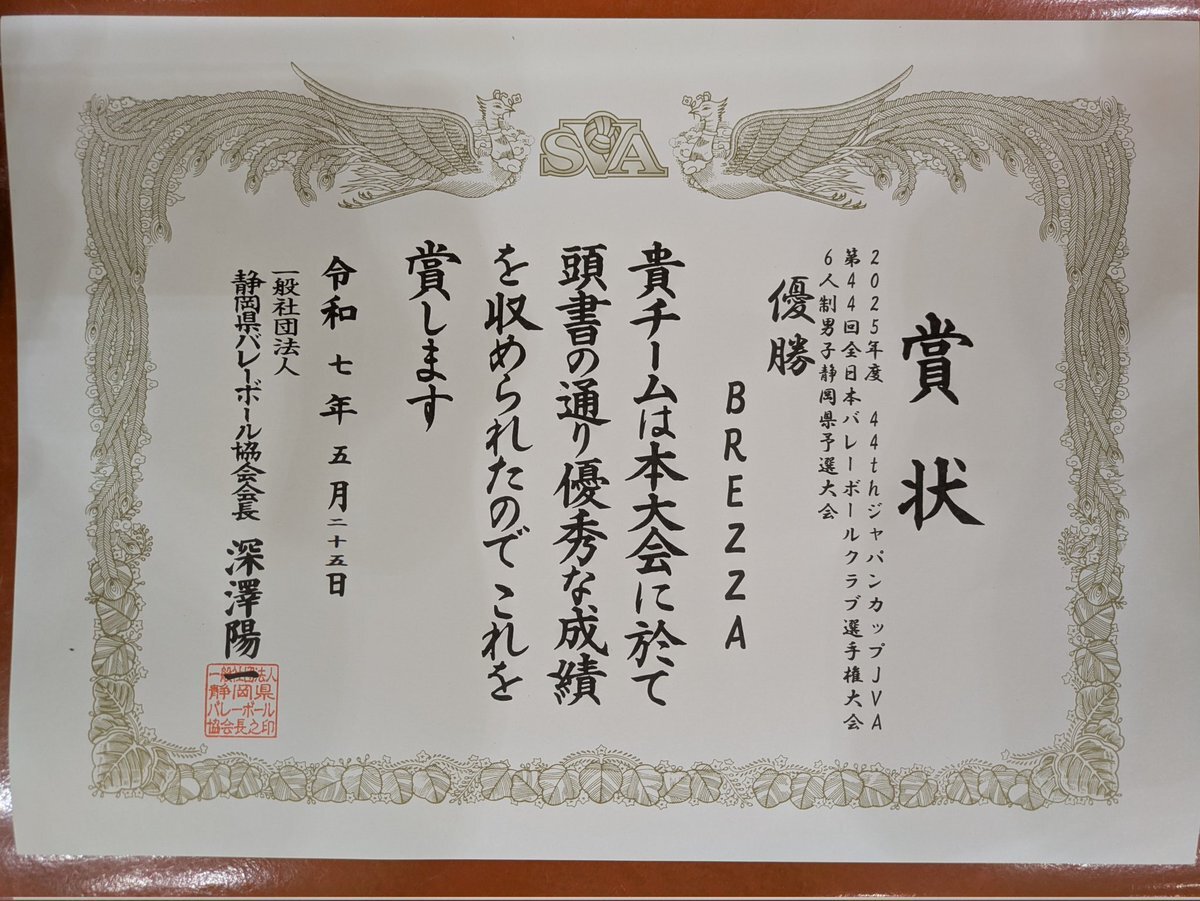 SVA
賞状
2025年度 44thジャパンカップJVA
第44回全日本バレーボールクラブ選手権大会
6人制男子静岡県予選大会
優勝
BREZZA
貴チームは本大会に於て
頭書の通り優秀な成績
を収められたのでこれを
賞します
令和七年五月二十五日
一般社団法人
静岡県バレーボール協会会長 深澤陽一
一般社団法人
静岡県
バレーボール
協会長之印